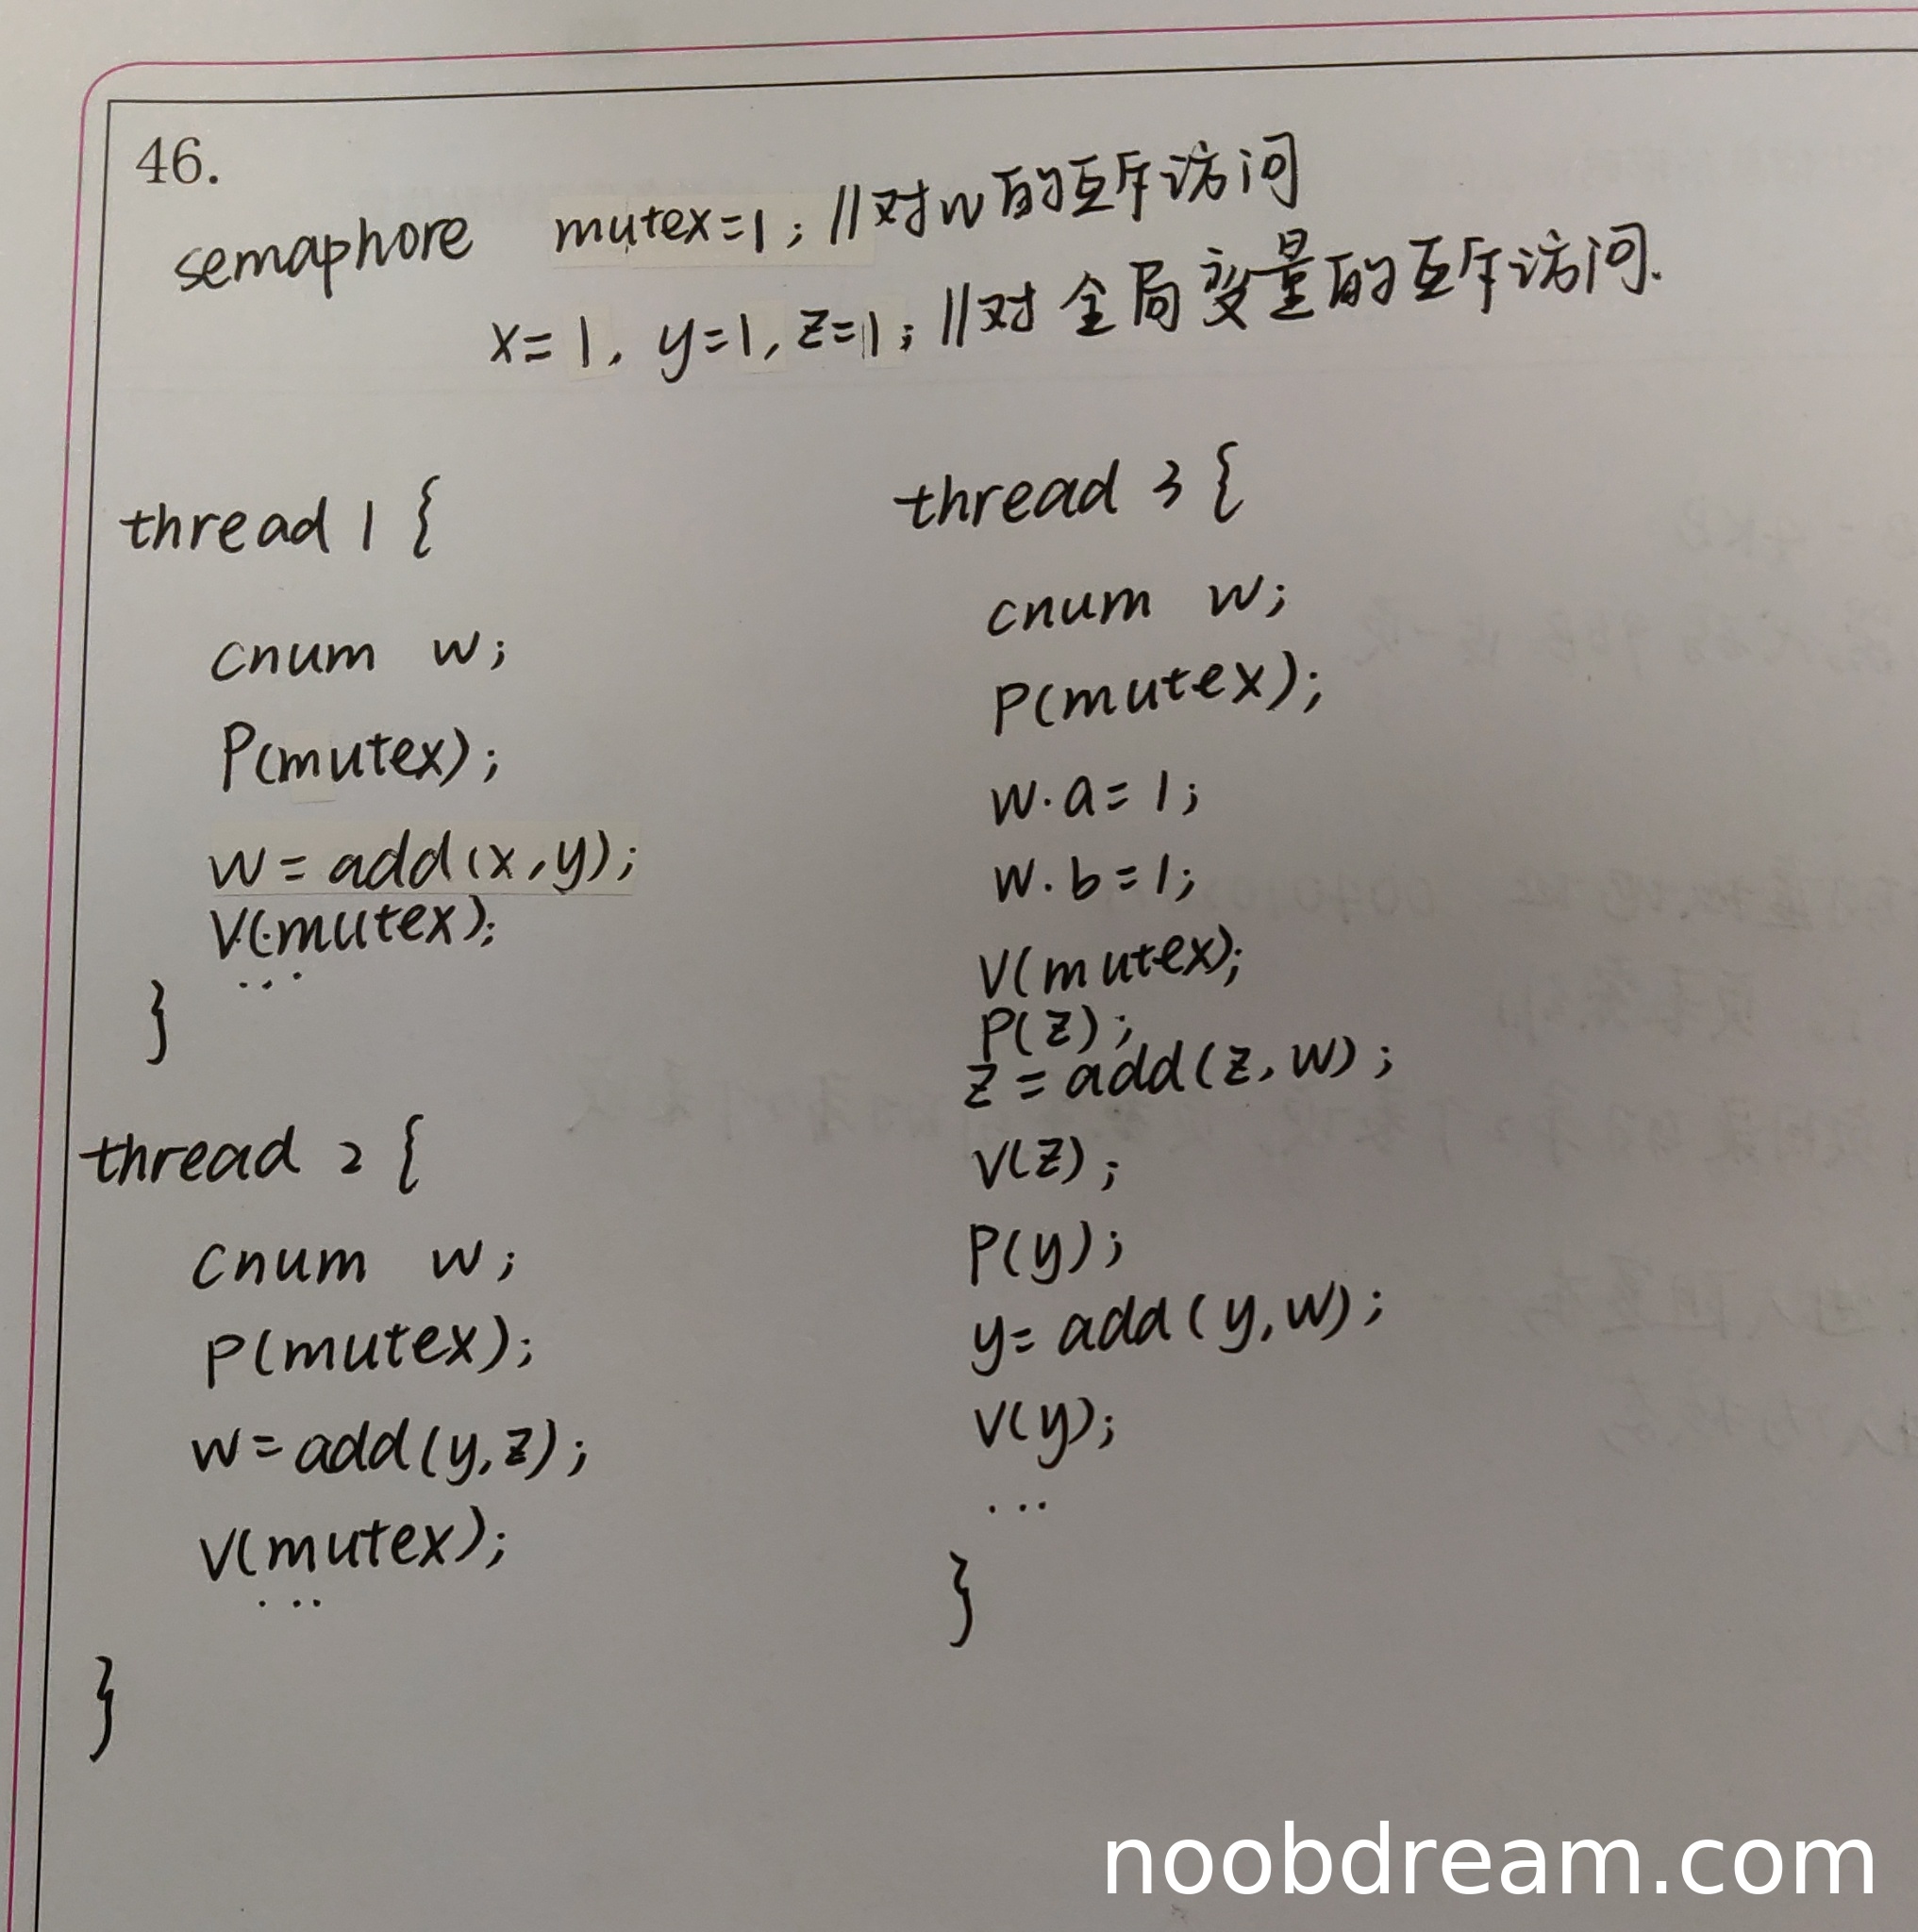 46.
semaphore mutex=1; //对w的互斥访问
x=1, y=1, z=1; //对全局变量的互斥访问.
thread 1 {
cnum w;
P(mutex);
w=add(x,y);
V(mutex);
...
}
thread 2 {
cnum w;
P(mutex);
w=add(y,z);
V(mutex);
...
}
thread 3 {
cnum w;
P(mutex);
w.a=1;
w.b=1;
V(mutex);
P(z);
z=add(z,w);
V(z);
P(y);
y=add(y,w);
V(y);
...
}
noobdream.com